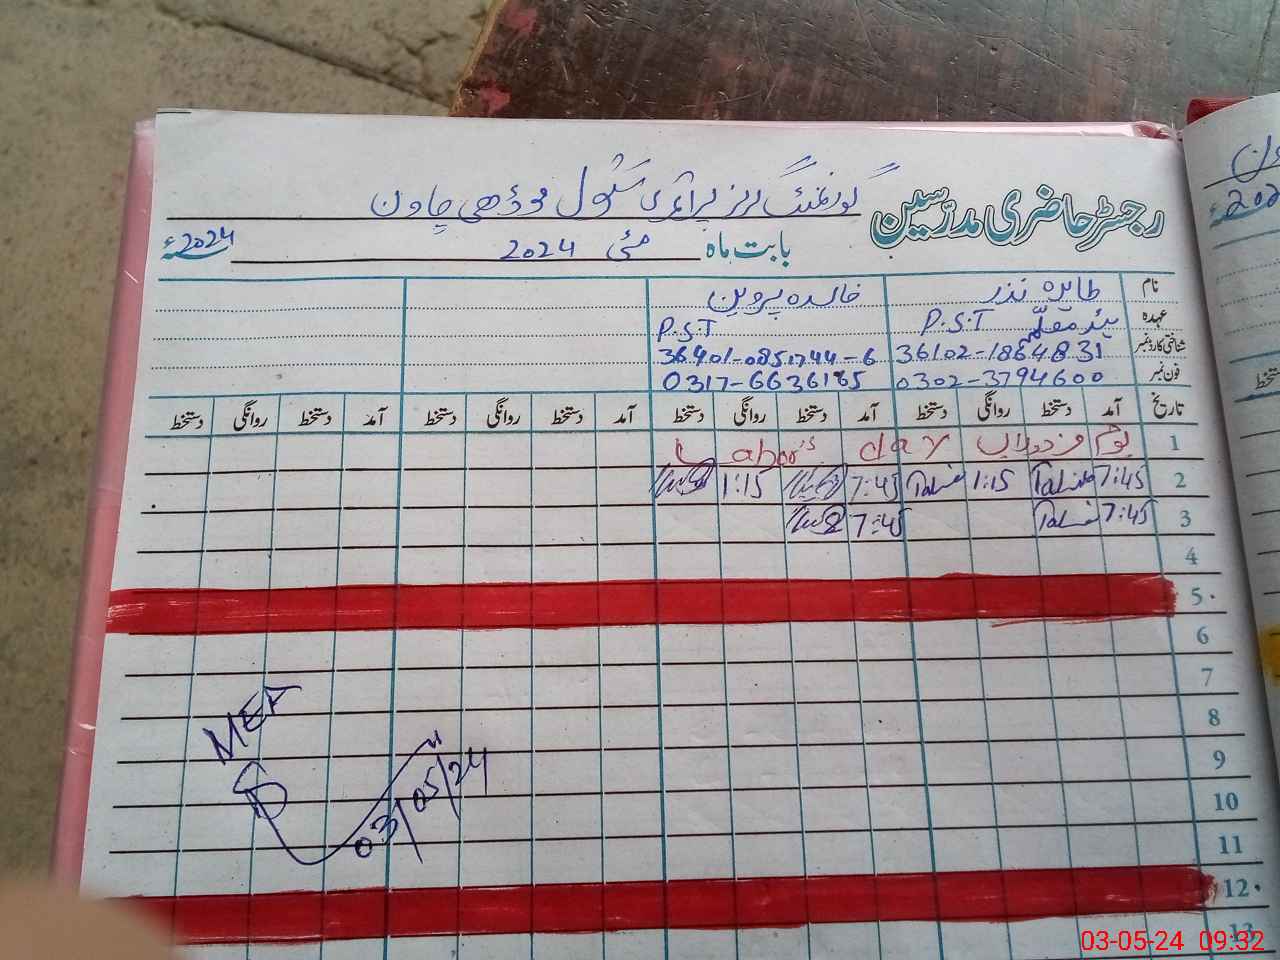 رجسٹر حاضری مدرسین گورنمنٹ گرلز پرائمری سکول موڈھی چاون
بابت ماہ مئی 2024 2024ء
نام طاہرہ نذر خالدہ پروین
عہدہ P.S.T P.S.T
شناختی کارڈ نمبر 36102-1864831 36401-0851744-6
فون نمبر 0302-3794600 0317-6636185
تاریخ آمد دستخط روانگی دستخط آمد دستخط روانگی دستخط آمد دستخط روانگی دستخط آمد دستخط روانگی دستخط
1 یوم مزدوراں Labor's day
2 7:45 1:15 7:45 1:15
3 7:45 7:45
4
5
6
7
8
9
10
11
12
13
MEA
03/05/24
03-05-24 09:32